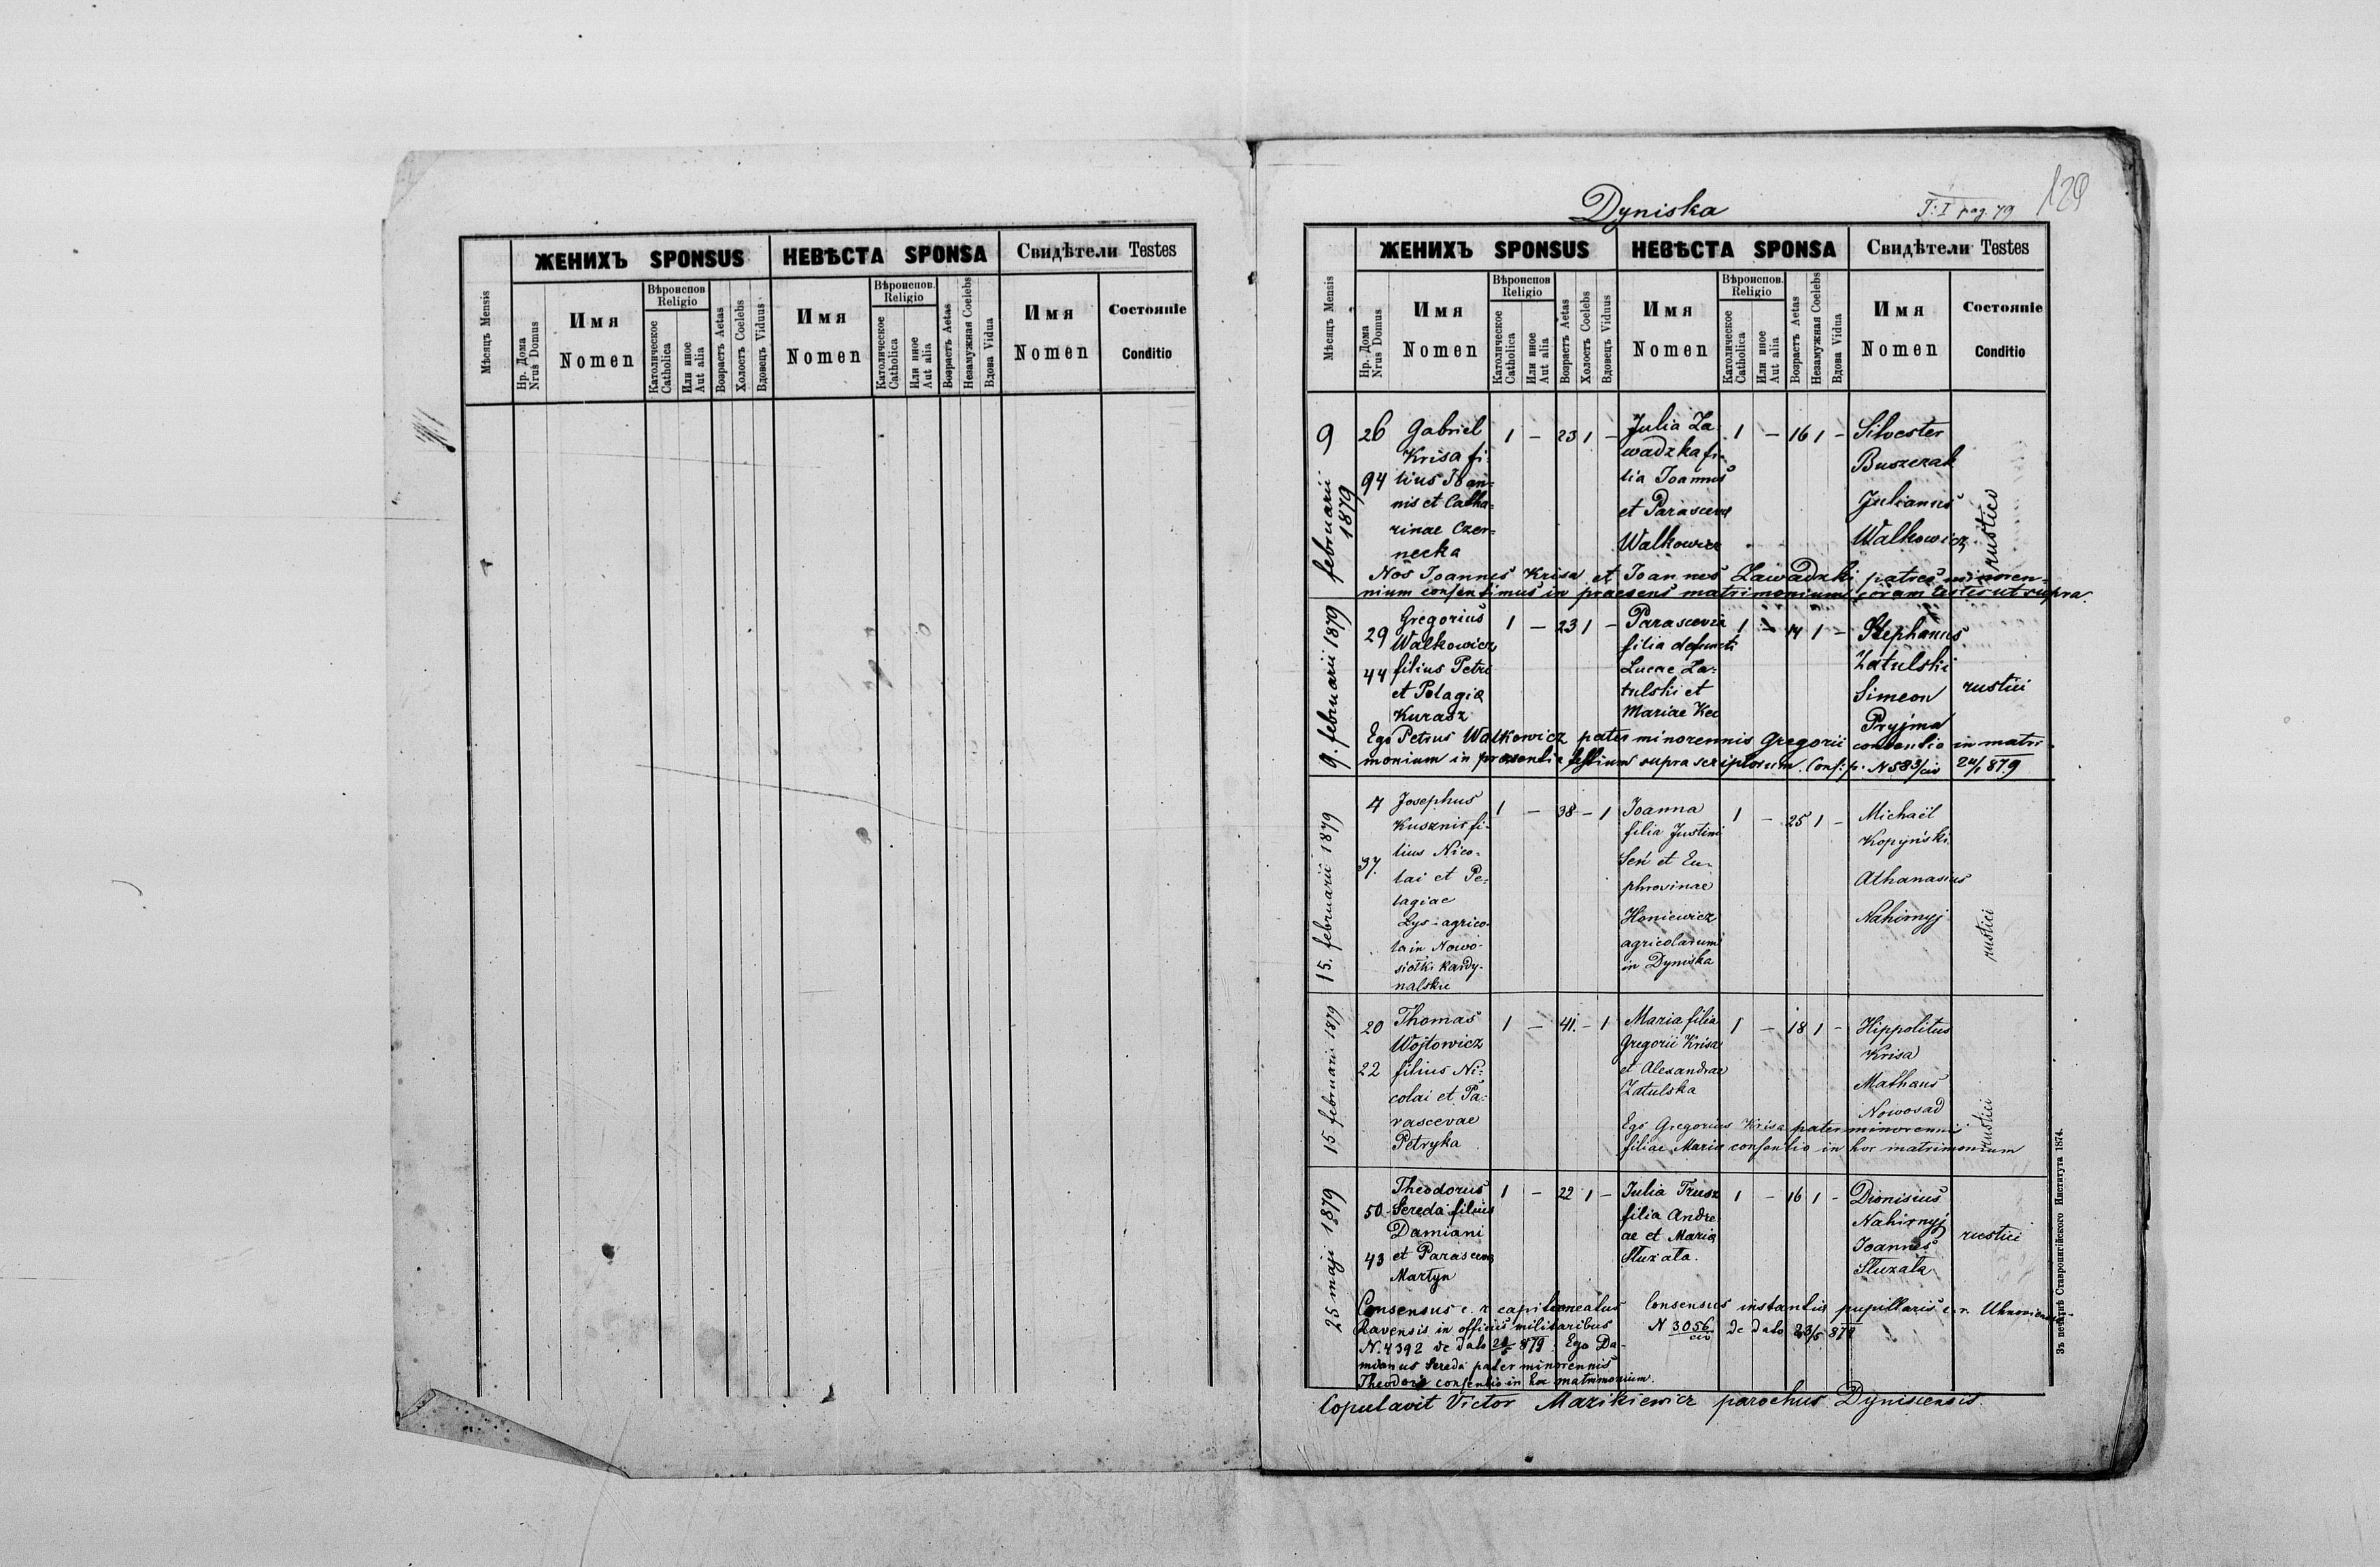 ЖЕНИХЪ SPONSUS НЕВѢСТА SPONSA Свидѣтели Testes
Мѣсяцъ Mensis
Нр. Дома
Nrus Domus
Имя
Nomen
Вѣроиспов
Religio
Католическое
Catholica
Или иное
Aut alia
Возрастъ Aetas
Холостъ Coelebs
Вдовецъ Viduus
Имя
Nomen
Вѣроиспов.
Religio
Католическое
Catholica
Или иное
Aut alia
Возрастъ Aetas
Незамужная Coelebs
Вдова Vidua
Имя
Nomen
Состоянiе
Conditio
Dyniska
T: I pag. 79
129
ЖЕНИХЪ SPONSUS НЕВѢСТА SPONSA Свидѣтели Testes
Мѣсяцъ Mensis
Нр. Дома
Nrus Domus
Имя
Nomen
Вѣроиспов
Religio
Католическое
Catholica
Или иное
Aut alia
Возрастъ Aetas
Холостъ Coelebs
Вдовецъ Viduus
Имя
Nomen
Вѣроиспов.
Religio
Католическое
Catholica
Или иное
Aut alia
Возрастъ Aetas
Незамужная Coelebs
Вдова Vidua
Имя
Nomen
Состоянiе
Conditio
9 februarii
1879
26
94
Gabriel
Krisa fi-
lius Joan-
nis et Catha-
rinae Czer-
necka
1 - 23 1 -
Julia Za
wadzka fi-
lia Joannis
et Parascevae
Walkowicz
1 - 16 1 -
Silvester
Buszczak
Julianus
Walkowicz
rustici
Nos Joannes Krisa et Joannes Zawadzki patres minoren-
nium consentimus in praesens matrimonium coram testes ut supra.
9. februarii 1879
29
44
Gregorius
Walkowicz
filius Petri
et Pelagia
Kurasz
1 - 23 1 -
Parascevia
filia defuncti
Lucae Za-
tulski et
Mariae Kec
1 - 1 -
Stephanus
Zatulski
Simeon
Pryjma
rustici
Ego Petrus Walkowicz pater minorennis Gregorii consentio in matri-
monium in praesentia testium supra scriptorum. Cons: p. N 583/civ 24/1 879
15. februarii 1879
4
37.
Josephus
Kusznir fi-
lius Nico-
lai et Pe-
lagiae
Lys - agrico-
la in Nowo-
siółki kardy-
nalskie
1 - 38 - 1
Joanna
filia Justini
Seń et Eu-
phrosinae
Haniewicz
agricolarum
in Dyniska
1 - 25 1 -
Michaël
Kopyński
Athanasius
Nahirnyj
rustici
15 februarii 1879
20
22
Thomas
Wojtowicz
filius Ni-
colai et Pa-
rascevae
Petryka
1 - 41. - 1
Maria filia
Gregorii Krisa
et Alexandrae
Zatulska
1 - 18 1 -
Hippolitus
Krisa
Mathaus
Nowosad
rustici
Ego Gregorius Krisa pater minorennis
filiae Maria consentio in hoc matrimonium
25 maji 1879
50
43
Theodorus
Sereda filius
Damiani
et Parasceva
Martyn
1 - 22 1 -
Julia Trusz
filia Andre
ae et Maria
Sluzala.
1 - 16 1 -
Dionisius
Nahirnyj
Joannes
Sluzala
rustici
Consensus c. r. capitaneatus
Ravensis in officiis militaribus
N. 4392 de dato 879. Ego Da-
mianus Sereda pater minorennis
Theodori consentio in hoc matrimonium.
Consensus instantiis pupillaris c. r. Uhnoviensis
N 3056/civ de dato 23/5 879
Copulavit Victor Mazikiewicz parochus Dyniscensis.
Зъ печатнѣ Ставропигійского Института 1874.